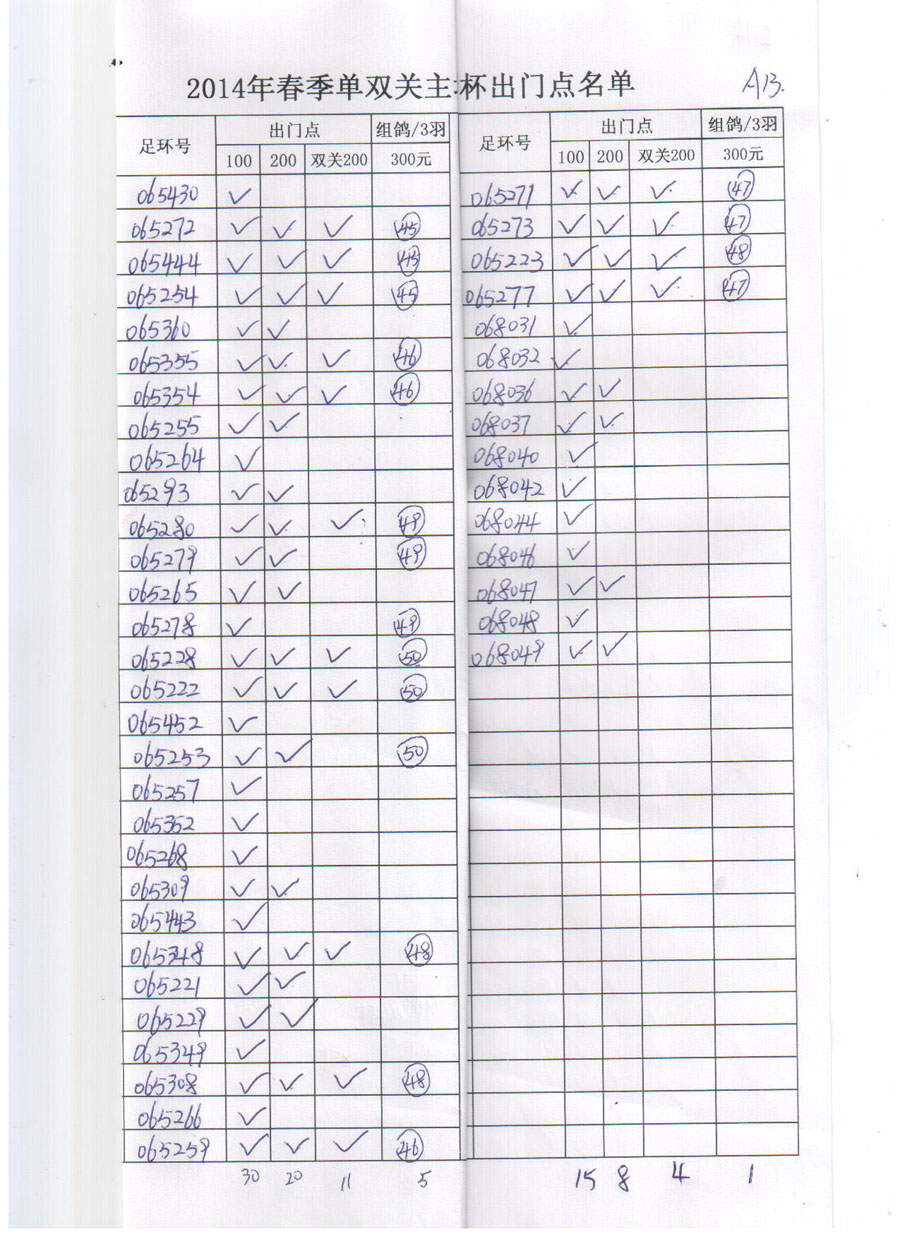 2014年春季单双关主杯出门点名单 A13.
足环号 出门点 组鸽/3羽
100 200 双关200 300元
065430 ✓
065272 ✓ ✓ ✓ 45
065444 ✓ ✓ ✓ 45
065254 ✓ ✓ ✓ 45
065360 ✓ ✓
065355 ✓ ✓ ✓ 46
065354 ✓ ✓ ✓ 46
065255 ✓ ✓
065264 ✓
065293 ✓ ✓
065280 ✓ ✓ ✓ 49
065279 ✓ ✓ 49
065265 ✓ ✓
065278 ✓ 49
065228 ✓ ✓ ✓ 50
065222 ✓ ✓ ✓ 50
065452 ✓
065253 ✓ ✓ 50
065257 ✓
065352 ✓
065268 ✓
065309 ✓ ✓
065443 ✓
065348 ✓ ✓ ✓ 48
065221 ✓ ✓
065229 ✓ ✓
065349 ✓
065308 ✓ ✓ ✓ 48
065266 ✓
065259 ✓ ✓ ✓ 46
30 20 11 5
足环号 出门点 组鸽/3羽
100 200 双关200 300元
065271 ✓ ✓ ✓ 47
065273 ✓ ✓ ✓ 47
065223 ✓ ✓ ✓ 48
065277 ✓ ✓ ✓ 47
068031 ✓
068032 ✓
068036 ✓ ✓
068037 ✓ ✓
068040 ✓
068042 ✓
068044 ✓
068046 ✓
068047 ✓ ✓
068048 ✓
068049 ✓ ✓
15 8 4 1